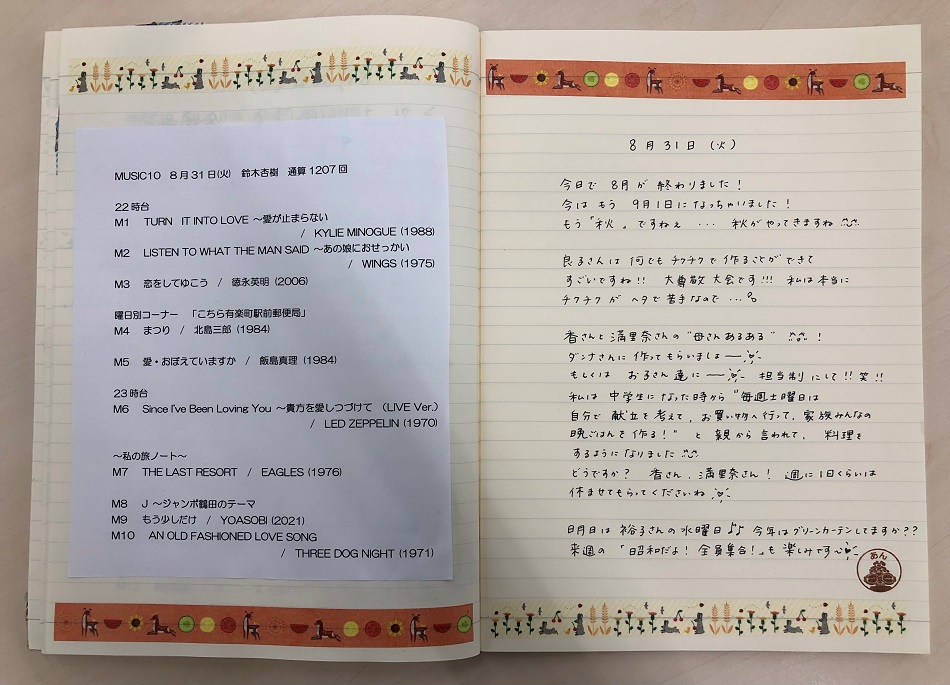 MUSIC10 8月31日(火) 鈴木杏樹 通算1207回
22時台
M1 TURN IT INTO LOVE ～愛が止まらない
/ KYLIE MINOGUE (1988)
M2 LISTEN TO WHAT THE MAN SAID ～あの娘におせっかい
/ WINGS (1975)
M3 恋をしてゆこう / 徳永英明 (2006)
曜日別コーナー 「こちら有楽町駅前郵便局」
M4 まつり / 北島三郎 (1984)
M5 愛・おぼえていますか / 飯島真理 (1984)
23時台
M6 Since I've Been Loving You ～貴方を愛しつづけて (LIVE Ver.)
/ LED ZEPPELIN (1970)
～私の旅ノート～
M7 THE LAST RESORT / EAGLES (1976)
M8 J ～ジャンボ鶴田のテーマ
M9 もう少しだけ / YOASOBI (2021)
M10 AN OLD FASHIONED LOVE SONG
/ THREE DOG NIGHT (1971)
8月31日 (火)
今日で 8月が 終わりました!
今は もう 9月1日に なっちゃいました!
もう「秋」ですねぇ … 秋がやってきますね
良子さんは 何でも チクチクで 作ることができて
すごいですね!! 大尊敬 大会です!!! 私は本当に
チクチクが ヘタで 苦手なので…
香さんと 満里奈さんの "母さんあるある" !
ダンナさんに 作ってもらいましょ――
もしくは お子さん達に―― 担当制にして!! 笑!!
私は 中学生に なった時から "毎週土曜日は
自分で 献立を 考えて、お買い物へ行って、家族みんなの
晩ごはんを 作る!" と 親から 言われて、料理を
するように なりました
どうですか? 香さん、満里奈さん! 週に1日くらいは
休ませてもらってくださいね
明日は 裕子さんの 水曜日♪♪ 今年はグリーンカーテンしてますか??
来週の 「昭和だよ! 全員集合!」も 楽しみです〜
あん